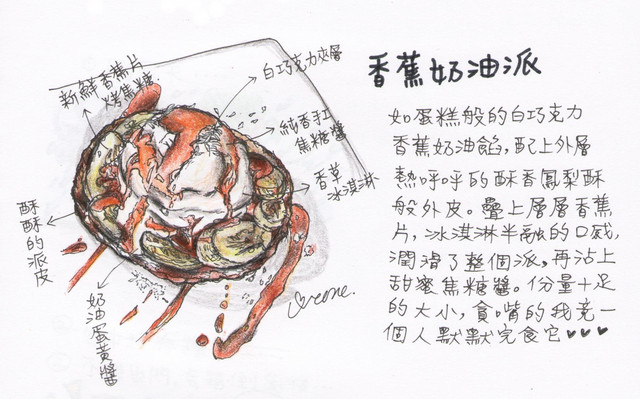 香蕉奶油派
如蛋糕般的白巧克力
香蕉奶油餡，配上外層
熱呼呼的酥香鳳梨酥
般外皮。疊上層層香蕉
片，冰淇淋半融的口感，
潤滑了整個派，再沾上
甜蜜焦糖醬。份量十足
的大小，貪嘴的我竟一
個人默默完食它♥♥♥
新鮮香蕉片
烤焦糖
白巧克力夾層
純香手工
焦糖醬
香草
冰淇淋
酥酥的派皮
奶油蛋黃醬